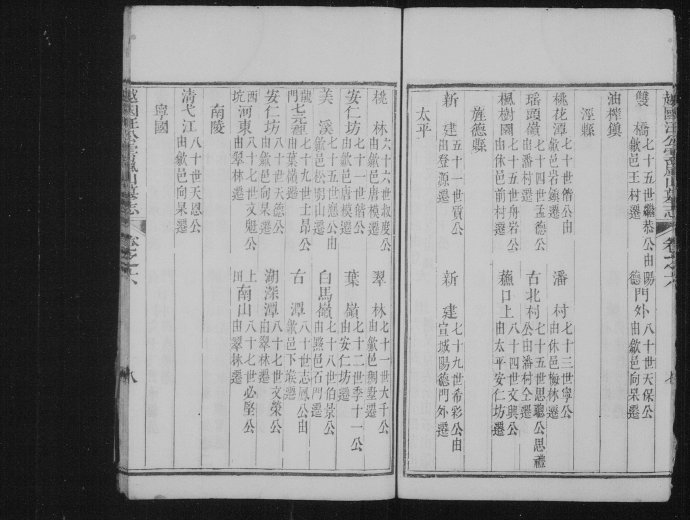 雙橋 七十五世繼恭公由
歙邑王村遷
陽德門外 八十世天保公
由歙邑向杲遷
油榨鎮
涇縣
桃花潭 七十世偕公由
歙邑岩鎮遷
潘村 七十三世寧公
由休邑梅林遷
瑶頭嶺 七十四世孟德公
由潘村遷
古北村 七十五世思聰公思禮
公由潘村仝遷
楓樹園 七十五世舟岩公
由休邑前村遷
蕉口上 八十四世文興公
由太平安仁坊遷
旌德縣
新建 五十一世貢公
由登源遷
新建 七十九世希彩公由
宣城陽德門外遷
太平
桃林 六十六世叔度公
由歙邑唐模遷
翠林 七十一世大千公
由歙邑稠墅遷
安仁坊 七十一世偕公
由歙邑唐模遷
葉嶺 七十二世季十一公
由安仁坊遷
美溪 七十五世惠公由
歙邑松明山遷
白馬嶺 七十八世伯景公
由黟邑石門遷
龍門 七十九世上昂公
由葉嶺遷
右潭 八十世志鳳公由
歙邑下
安仁坊 八十世天德公
由歙邑向杲遷
湖深潭 八十七世文榮公
由翠林遷
西坑河東 八十七世文魁公
由翠林遷
上田南山 八十七世必肇公
由翠林遷
南陵
清弋江 八十世天恩公
由歙邑向杲遷
寧國
越國汪公
卷之六
八